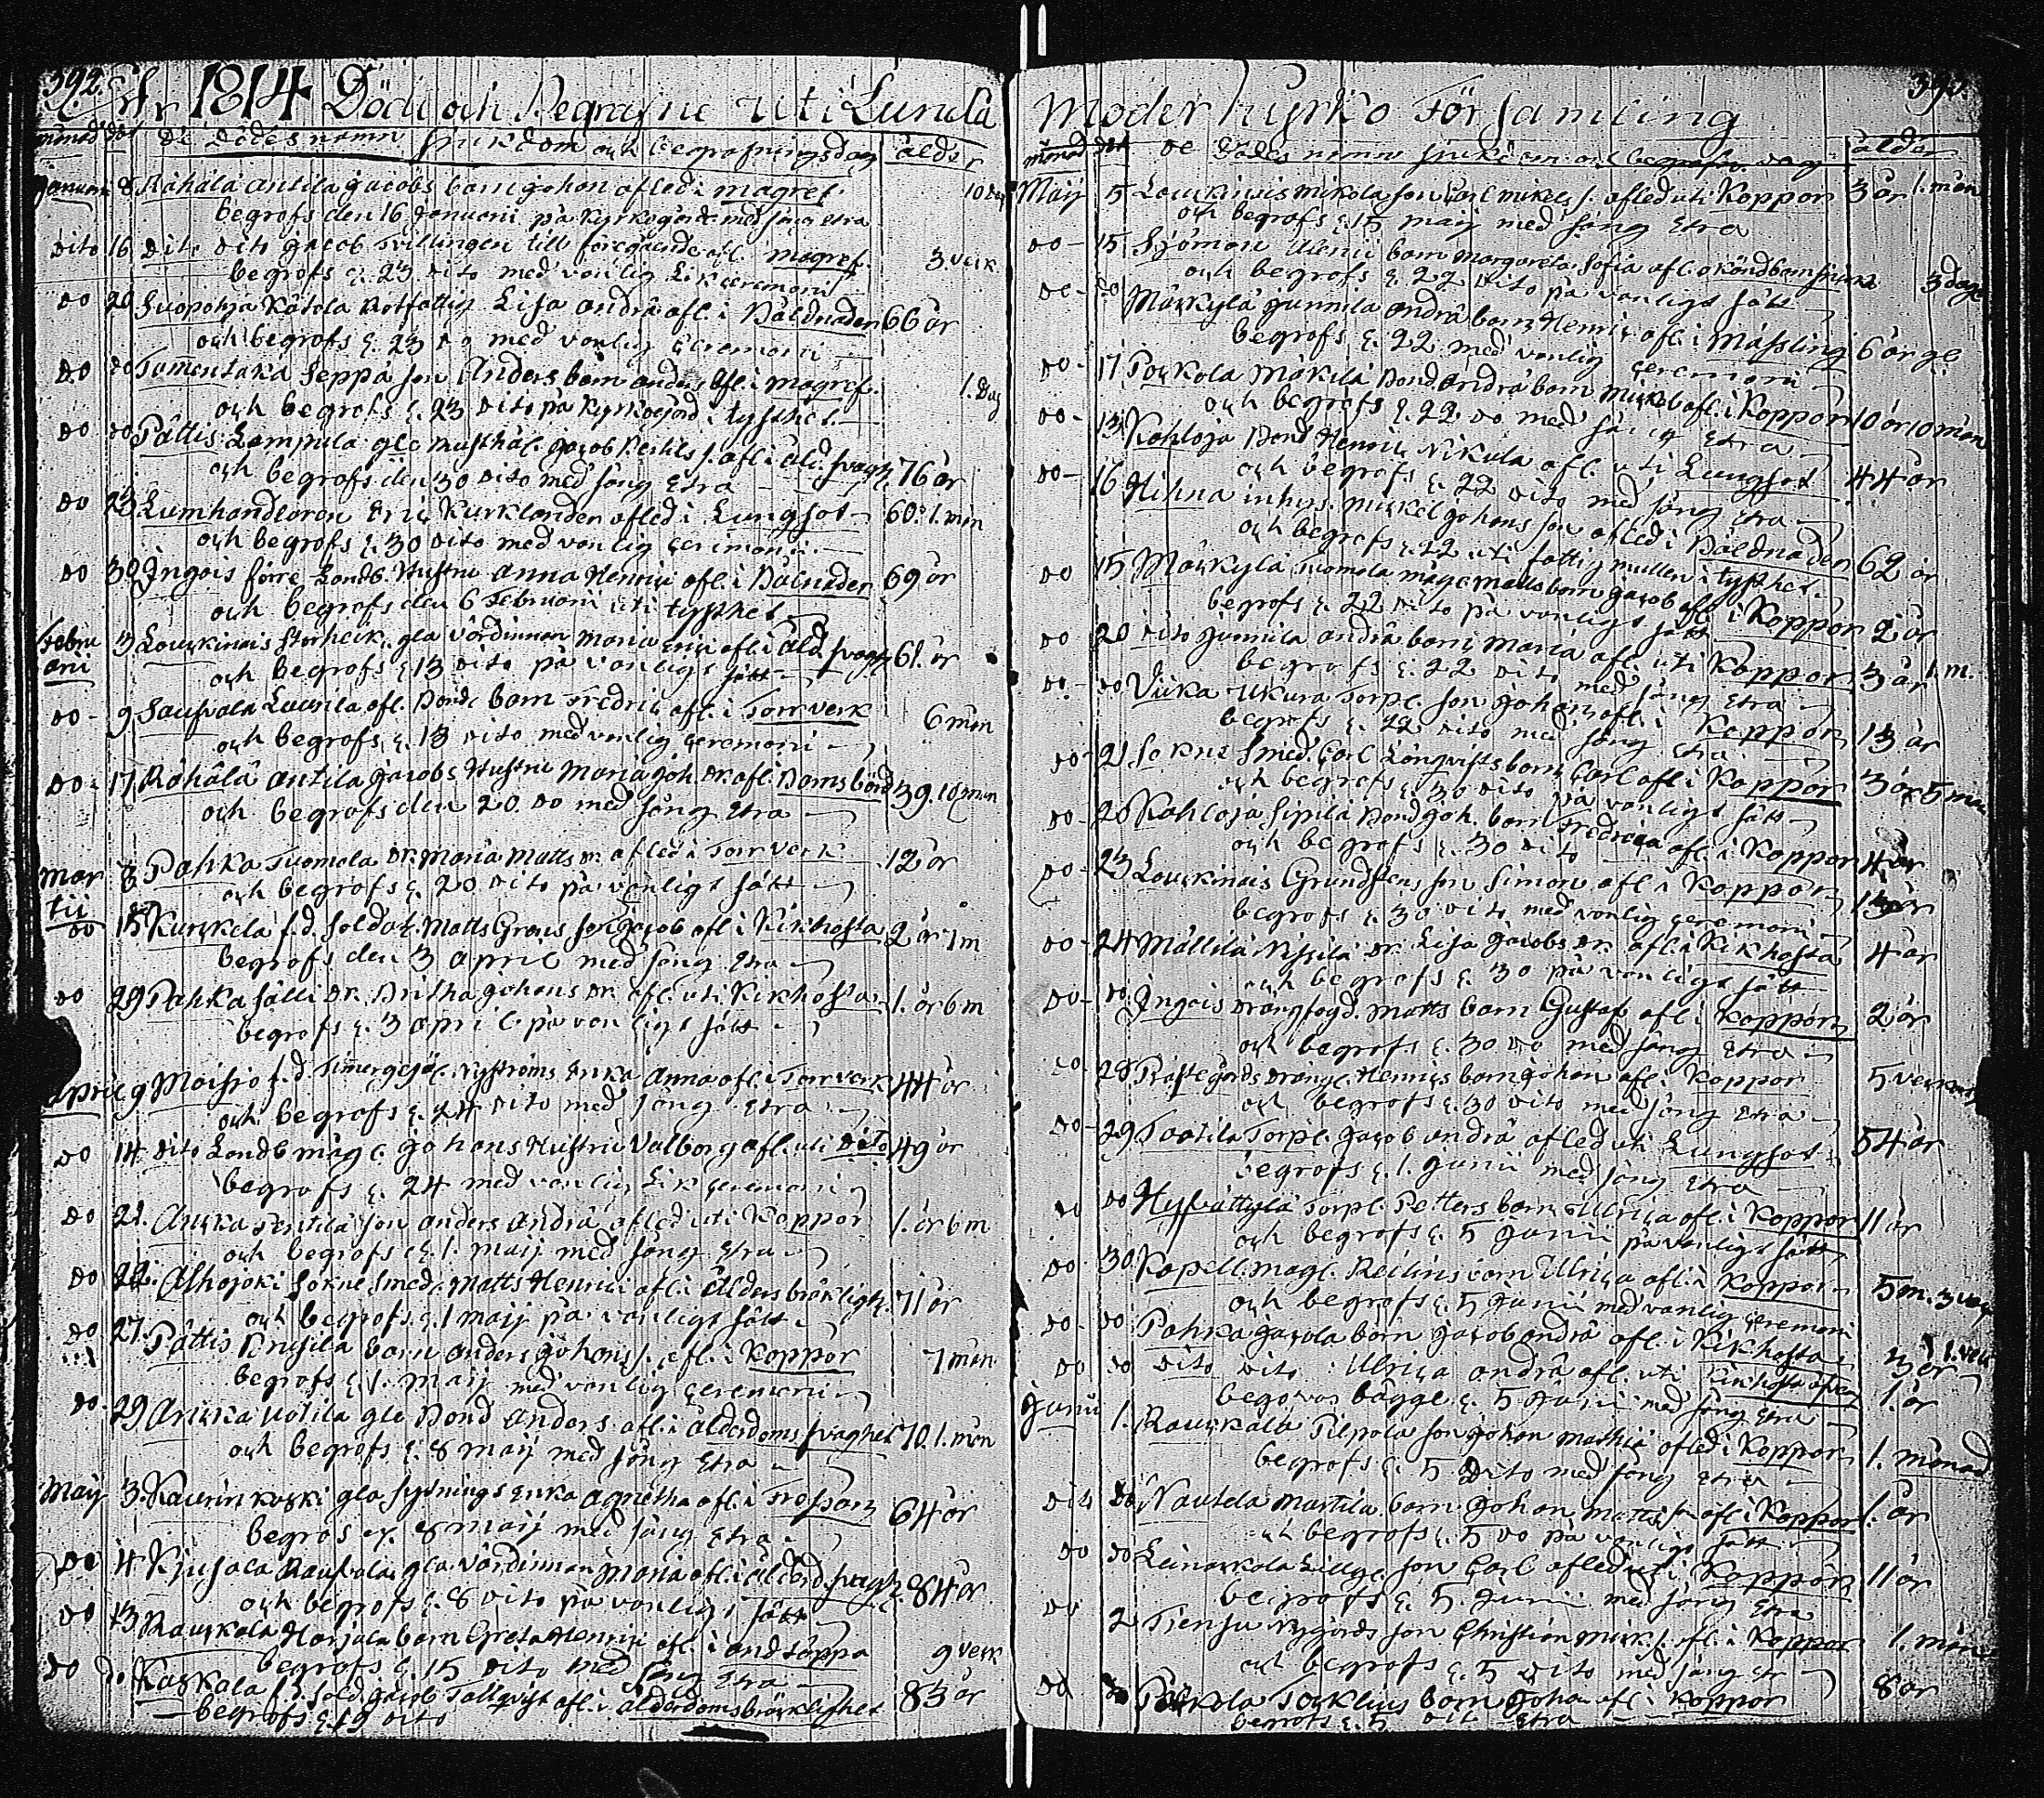 392.
År 1814 Döde och Begrafne uti Lundå
månad dat De Dödes namn siukdom och begrafningsdag ålder
Januari 8 Råhålå antila jacobs barn johan afled i magref. 10 dag
begrofs den 16 Januari på kyrkogård med sång etra
dito 16 dito dito jacob tvillingen till föregående afl. magref. 3. veck
begrofs d. 23 dito med vanlig Lik ceremoni
do 20 Suopohja Kåtola Rotfattig Lisa andrå afl. i Båldnaden 66 år
och begrofs d. 23 do med vanlig ceremoni
do do Tamentaka Seppå son Anders barn anders afl. i magref. 1. Dag
och begrofs d. 23 dito på kyrkogård i tysthet.
do do Påttis Lampula gle husthål. Jacob Bertils s. afl. i åld. svagh. 76 år
och begrofs den 30 dito med sång etra
do 23 Lumhandlaren Eric Kurklander afled i Lungsot 60. 1. mån
och begrofs d. 30 dito med vanlig ceremoni.
do 30 Ingois förre Landb. Hustru Anna Henric afl. i Bålnaden 69 år
och begrofs den 6 Februari uti tysthet
Februari 3 Louckinais storheik. gla värdinnan Maria eric afl. i åld. svagh 61. år
och begrofs d. 13 dito på vanligt sätt
do - 9 Saufvala Laurila afl. Bonde barn Fredric afl. i Torrverk 6 mån
och begrofs d. 13 dito med vanlig ceremoni
do - 17 Råhålå antila jacobs Hustru Maria joh. dr. afl. i Barnsbörd 39. 10 mån
och begrofs den 20. do med sång etra
Martii 8 Pahka Tuomola dr. Maria Matts dr. afled i Torrverk 12 år
och begrofs d. 20 dito på vanligt sätt
do 15 Kurckela f.d. soldat. Matts Grois son jacob afl. i Kikhosta 2 år 1 m
begrofs den 3 april med sång etra
do 29 Pahka sälli dr. Britha johans dr. afl. uti Kikhosta 1. år 6 m
begrofs d. 3 april på vanligt sätt
april 9 Moisio f.d. Nyströms Enka Anna afl. i Torrverk 44 år
och begrofs d. 24 dito med sång etra
do 14 dito Landb måg. johans Hustru Valborg afl. uti dito 49 år
begrofs d. 24 med vanlig Lik ceremoni
do 21. Aucka Pentilå son anders andrå afled uti Koppor 1. år 6 m
och begrofs d. 1. maij med sång etra
do 22. Alhojoki Sokne smed. Matts Henric afl. i ålders bräklight. 71 år
och begrofs. d. 1 maij på vanligt sätt
do 27. Påttis Prusila barn anders johans s. afl. i Koppor 7 mån
begrofs d. 1. Maij med vanlig ceremoni
do. 29 Aucka Uotila gle Bond anders afl. i ålderdoms svaghet 70. 1. mån
och begrofs d. 8 maij med sång etra
Maij 3. Raunin koski gla sytnings enka agnetha afl. i Frossan 64 år
begrofs d. 8 maij med sång etra
do 4 Kjusala Raufvola gla värdinnan Maria afl. i ålderd. svagh. 84 år
och begrofs d. 8 dito på vanligt sätt
do 13. Rauckola Harjula barn Greta Henric afl. i andtäppa 9 veck
begrofs d. 15 dito med sång etra
do do Kaskala f.d. sold. jacob Tallqvist afl. i ålderdoms bräcklighet 83 år
begrofs d. 19 dito
Moderkyrko Församling
månad dat de Dödes namn siukdom och begrafn. dag ålder
Maij 5 Louckinais mikola son Carl mikels s. afled uti Koppor 3 år 1. mån
och begrofs d. 15 maij med sång etra
do - 15 Sjöman Alenii barn Margareta Sofia afl. okänd barnsiuka 3 dagar
och begrofs d. 22 dito på vanligt sätt
do - do Måckylå junnila andrå barn Henric afl. i Måssling 6 år
begrofs d. 22 med vanlig ceremoni
do - 17 Pockola Måkilå Bond. andrå barn Mickel afl. i Koppor 10 år 10 mån
och begrofs d. 22 do med sång etra
do - 13 Kahloja Bond Henric Nikula afl. uti Lungsot 44 år
och begrofs d. 22 dito med sång etra
do - 16 Hihna inhys. mickel johans son afled i Båldnaden 62 år
och begrofs d. 22 uti fattig mullen i tysthet.
do 15 Måckylå Tuomola måge matts barn jacob afl. i Koppor 2 år
begrofs d. 22 dito på vanligt sätt
do 20 dito junnila andrå barn Maria afl. uti Koppor 3 år 1. m.
begrofs d. 22 dito med sång etra
do. - do Vicka Ukura Torp. son johan afl. i Koppor 13 år
begrofs d. 22 dito med sång etra
do - 21 Sokne smed. Carl Lönqvists barn Carl afl. i Koppor 3 år 5 mån
och begrofs d. 30 dito på vanligt sätt
do - 20 Kahloja Sipilå Bond joh. barn Fredrica afl. i Koppor 4 år
och begrofs d. 30 dito
do - 23 Louckinais Grundstens son Simon afl. i Koppor 13 år
begrofs d. 30 dito med vanlig ceremoni
do - 24 Mållilå Nissilå dr. Lisa jacobs dr. afl. i Kikhosta 4 år
och begrofs d. 30 på vanligt sätt
do - do Ingois drängfogd. Matts barn Gustaf afl. i Koppor 2 år
och begrofs d. 30 do med sång etra
do - 28 Prästegårds dräng. Henrics barn johan afl. i Koppor 5 veckor
och begrofs d. 30 dito med sång etra
do - 29 Taatila Torp. jacob andrå afled uti Lungsot 54 år
begrofs d. 1. Junii med sång etra
do do Hyfvåttylå Torp. Petters barn Ulrica afl. i Koppor 11 år
och begrofs d. 5 Junii på vanligt sätt
do - 30. Kapell. mag. Reilins barn Ulrica afl. i Koppor 5 m. 3 veck
och begrofs d. 5 Junii med vanlig ceremoni
do - do Pahka jacola barn jacob andrå afl. i Kikhosta
do do dito dito Ulrica andrå afl. uti Kikhosta 1. år
begrofvos bägge d. 5 Junii med sång etra
Junii 1. Rauckola Pilpola son johan mathie afled i Koppor 1. månad
begrofs d. 5 dito med sång etra
dito do Nautela martila barn johan matts son afl. i Koppor 1. år
och begrofs d. 5 do på vanligt sätt
do do Leinackola Lillg. son Carl afled uti Koppor 11 år
begrofs d. 5. Junii med sång etra
do 2 Tiensu Nygårds son Christian mick s. afl. i Koppor 1. mån
och begrofs d. 5 dito med sång etr
do do Pockola Tocklius barn johan afl. i Koppor 8 år
begrofs d. 5 dito etra